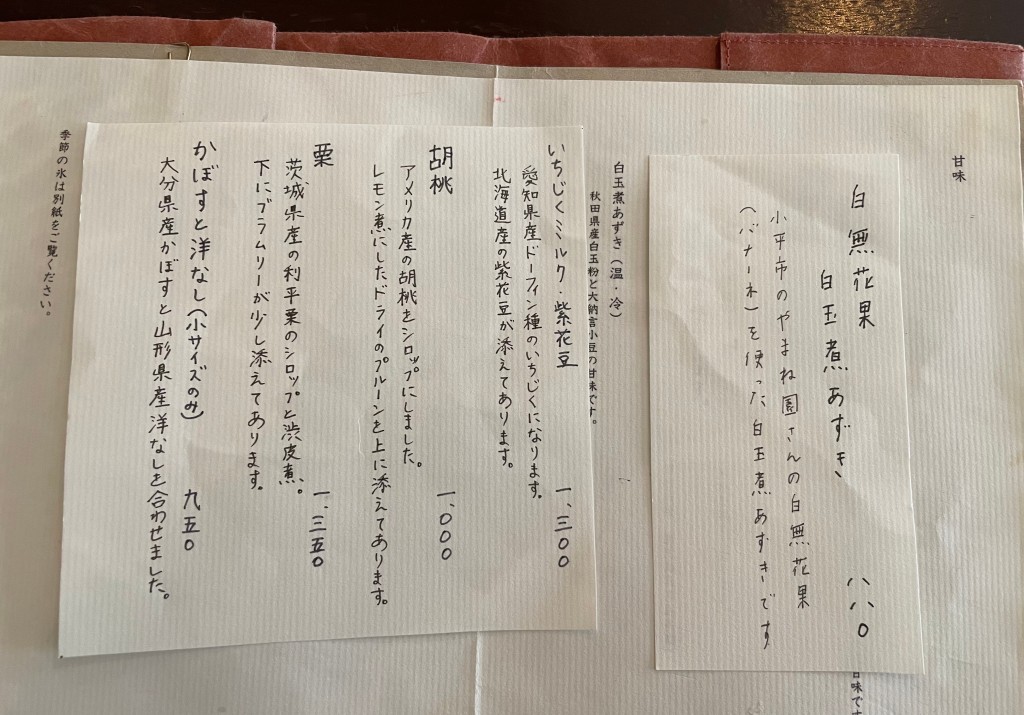 甘味
白無花果
白玉煮あずき 八八〇
小平市のやまね園さんの白無花果
(バナーネ)を使った白玉煮あずきです
甘味です
白玉煮あずき(温・冷)
秋田県産白玉粉と大納言小豆の甘味です。
いちじくミルク・紫花豆 一、三〇〇
愛知県産ドーフィン種のいちじくになります。
北海道産の紫花豆が添えてあります。
胡桃 一、〇〇〇
アメリカ産の胡桃をシロップにしました。
レモン煮にしたドライのプルーンを上に添えてあります。
栗 一、三五〇
茨城県産の利平栗のシロップと渋皮煮。
下にブラムリーが少し添えてあります。
かぼすと洋なし(小サイズのみ) 九五〇
大分県産かぼすと山形県産洋なしを合わせました。
季節の氷は別紙をご覧ください。